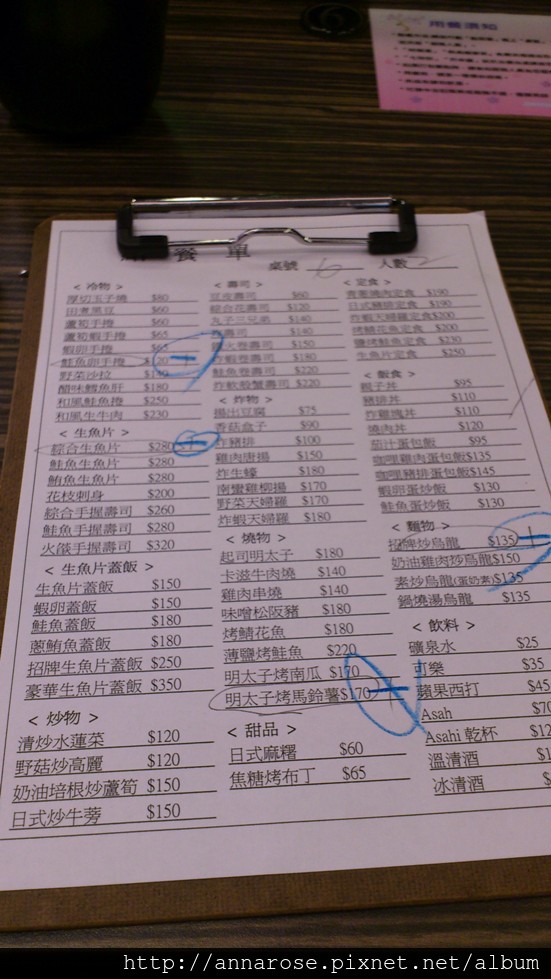 用餐須知
餐 單
桌號 6 人數 2
< 冷物 >
厚切玉子燒 $80
田煮黑豆 $60
蘆筍手捲 $60
蘆筍蝦手捲 $65
蝦卵手捲 $65
鮭魚卵手捲
野菜沙拉
醋味鱈魚肝 $180
和風鮭魚捲 $250
和風生牛肉 $230
< 生魚片 >
綜合生魚片 $280
鮭魚生魚片 $280
鮪魚生魚片 $280
花枝刺身 $200
綜合手握壽司 $260
鮭魚手握壽司 $280
火燄手握壽司 $320
< 生魚片蓋飯 >
生魚片蓋飯 $150
蝦卵蓋飯 $150
鮭魚蓋飯 $180
蔥鮪魚蓋飯 $180
招牌生魚片蓋飯 $250
豪華生魚片蓋飯 $350
< 炒物 >
清炒水蓮菜 $120
野菇炒高麗 $120
奶油培根炒蘆筍 $150
日式炒牛蒡 $150
< 壽司 >
豆皮壽司 $60
綜合花壽司 $120
丸子三兄弟 $140
壽司 $140
火卷壽司 $150
炸蝦卷壽司 $180
鮭魚卷壽司 $220
炸軟殼蟹壽司 $220
< 炸物 >
揚出豆腐 $75
香菇盒子 $90
炸豬排 $100
雞肉唐揚 $150
炸生蠔 $180
南蠻雞柳揚 $170
野菜天婦羅 $170
炸蝦天婦羅 $180
< 燒物 >
起司明太子 $180
卡滋牛肉燒 $140
雞肉串燒 $140
味噌松阪豬 $180
烤鯖花魚 $180
薄鹽烤鮭魚 $220
明太子烤南瓜 $170
明太子烤馬鈴薯$170
< 甜品 >
日式麻糬 $60
焦糖烤布丁 $65
< 定食 >
青蔥燒肉定食 $190
日式豬排定食 $190
炸蝦天婦羅定食$200
烤鯖花魚定食 $200
鹽烤鮭魚定食 $230
生魚片定食 $250
< 飯食 >
親子丼 $95
豬排丼 $110
炸雞塊丼 $110
燒肉丼 $120
茄汁蛋包飯 $95
咖哩雞肉蛋包飯$135
咖哩豬排蛋包飯$145
蝦卵蛋炒飯 $130
鮭魚蛋炒飯 $130
< 麵物 >
招牌炒烏龍 $135
奶油雞肉炒烏龍$150
素炒烏龍(蛋奶素)$135
鍋燒湯烏龍 $135
< 飲料 >
礦泉水 $25
可樂 $35
蘋果西打 $45
Asah $70
Asahi 乾杯 $12
溫清酒 $1
冰清酒 $
http://annarose.pixnet.net/album